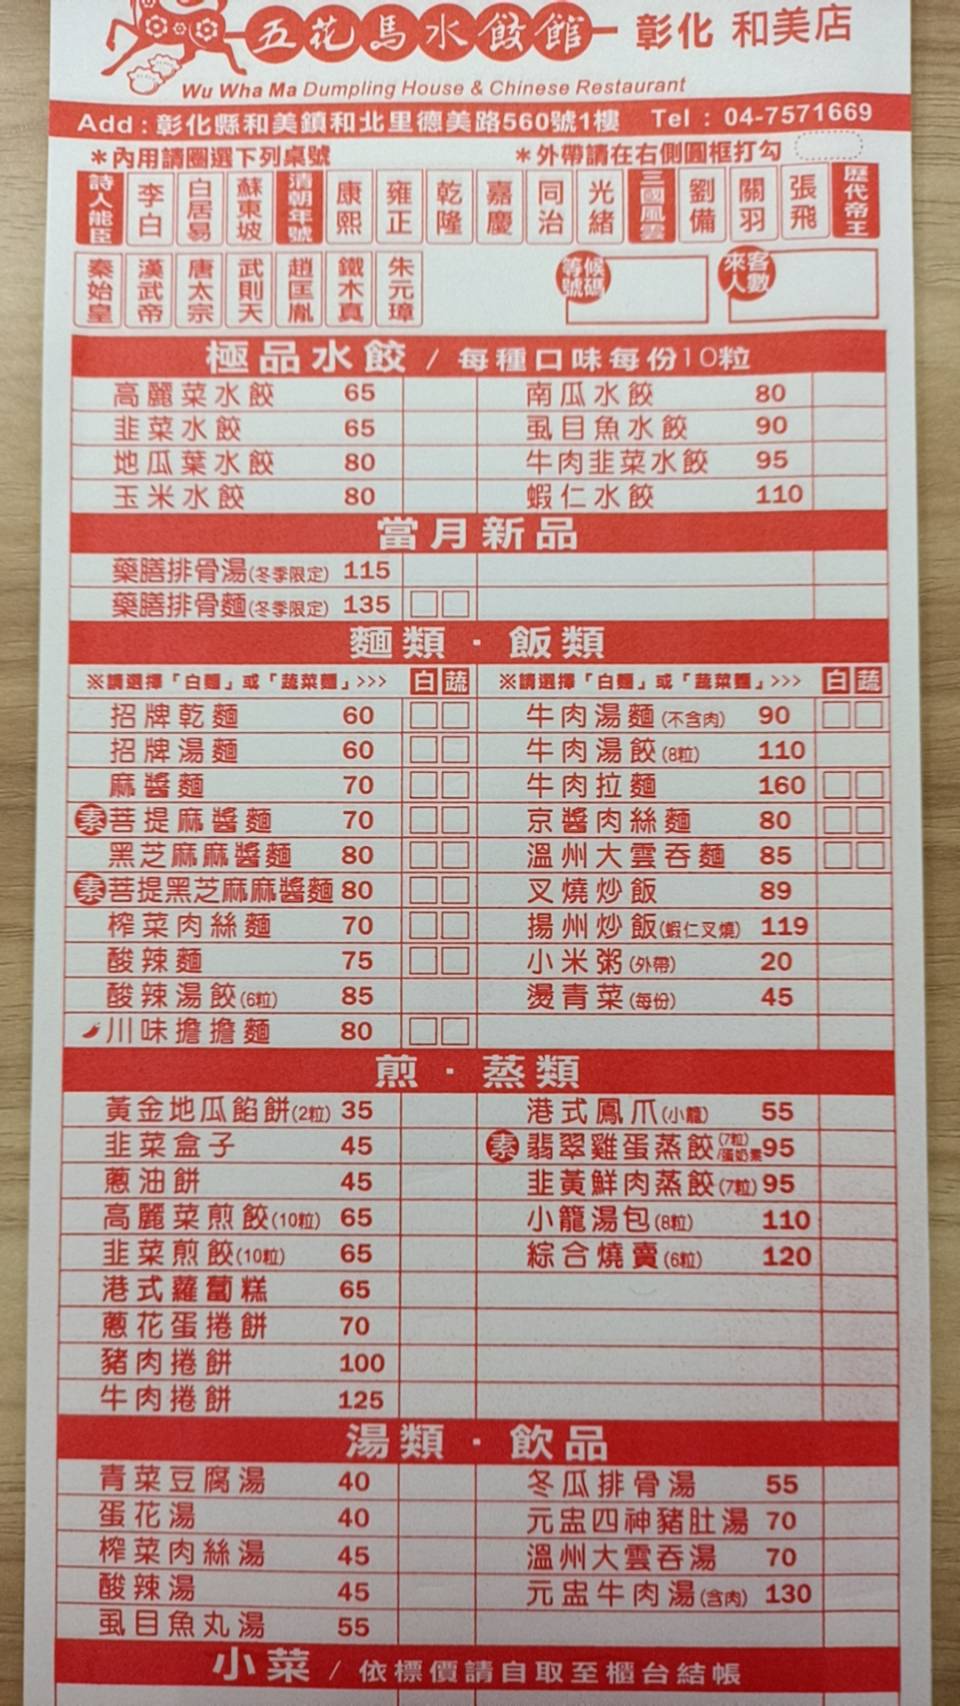 五花馬水餃館 彰化 和美店
Wu Wha Ma Dumpling House & Chinese Restaurant
Add：彰化縣和美鎮和北里德美路560號1樓 Tel：04-7571669
＊內用請圈選下列桌號 ＊外帶請在右側圓框打勾
詩人能臣 李白 白居易 蘇東坡 清朝年號 康熙 雍正 乾隆 嘉慶 同治 光緒 三國風雲 劉備 關羽 張飛 歷代帝王
秦始皇 漢武帝 唐太宗 武則天 趙匡胤 鐵木真 朱元璋 等候號碼 來客人數
極品水餃 / 每種口味每份10粒
高麗菜水餃 65 南瓜水餃 80
韭菜水餃 65 虱目魚水餃 90
地瓜葉水餃 80 牛肉韭菜水餃 95
玉米水餃 80 蝦仁水餃 110
當月新品
藥膳排骨湯(冬季限定) 115
藥膳排骨麵(冬季限定) 135
麵類・飯類
※請選擇「白麵」或「蔬菜麵」>>> 白 蔬 ※請選擇「白麵」或「蔬菜麵」>>> 白 蔬
招牌乾麵 60 牛肉湯麵(不含肉) 90
招牌湯麵 60 牛肉湯餃(8粒) 110
麻醬麵 70 牛肉拉麵 160
素 菩提麻醬麵 70 京醬肉絲麵 80
黑芝麻麻醬麵 80 溫州大雲吞麵 85
素 菩提黑芝麻麻醬麵 80 叉燒炒飯 89
榨菜肉絲麵 70 揚州炒飯(蝦仁叉燒) 119
酸辣麵 75 小米粥(外帶) 20
酸辣湯餃(6粒) 85 燙青菜(每份) 45
川味擔擔麵 80
煎・蒸類
黃金地瓜餡餅(2粒) 35 港式鳳爪(小籠) 55
韭菜盒子 45 素 翡翠雞蛋蒸餃(7粒)/蛋奶素 95
蔥油餅 45 韭黃鮮肉蒸餃(7粒) 95
高麗菜煎餃(10粒) 65 小籠湯包(8粒) 110
韭菜煎餃(10粒) 65 綜合燒賣(6粒) 120
港式蘿蔔糕 65
蔥花蛋捲餅 70
豬肉捲餅 100
牛肉捲餅 125
湯類・飲品
青菜豆腐湯 40 冬瓜排骨湯 55
蛋花湯 40 元盅四神豬肚湯 70
榨菜肉絲湯 45 溫州大雲吞湯 70
酸辣湯 45 元盅牛肉湯(含肉) 130
虱目魚丸湯 55
小菜 / 依標價請自取至櫃台結帳